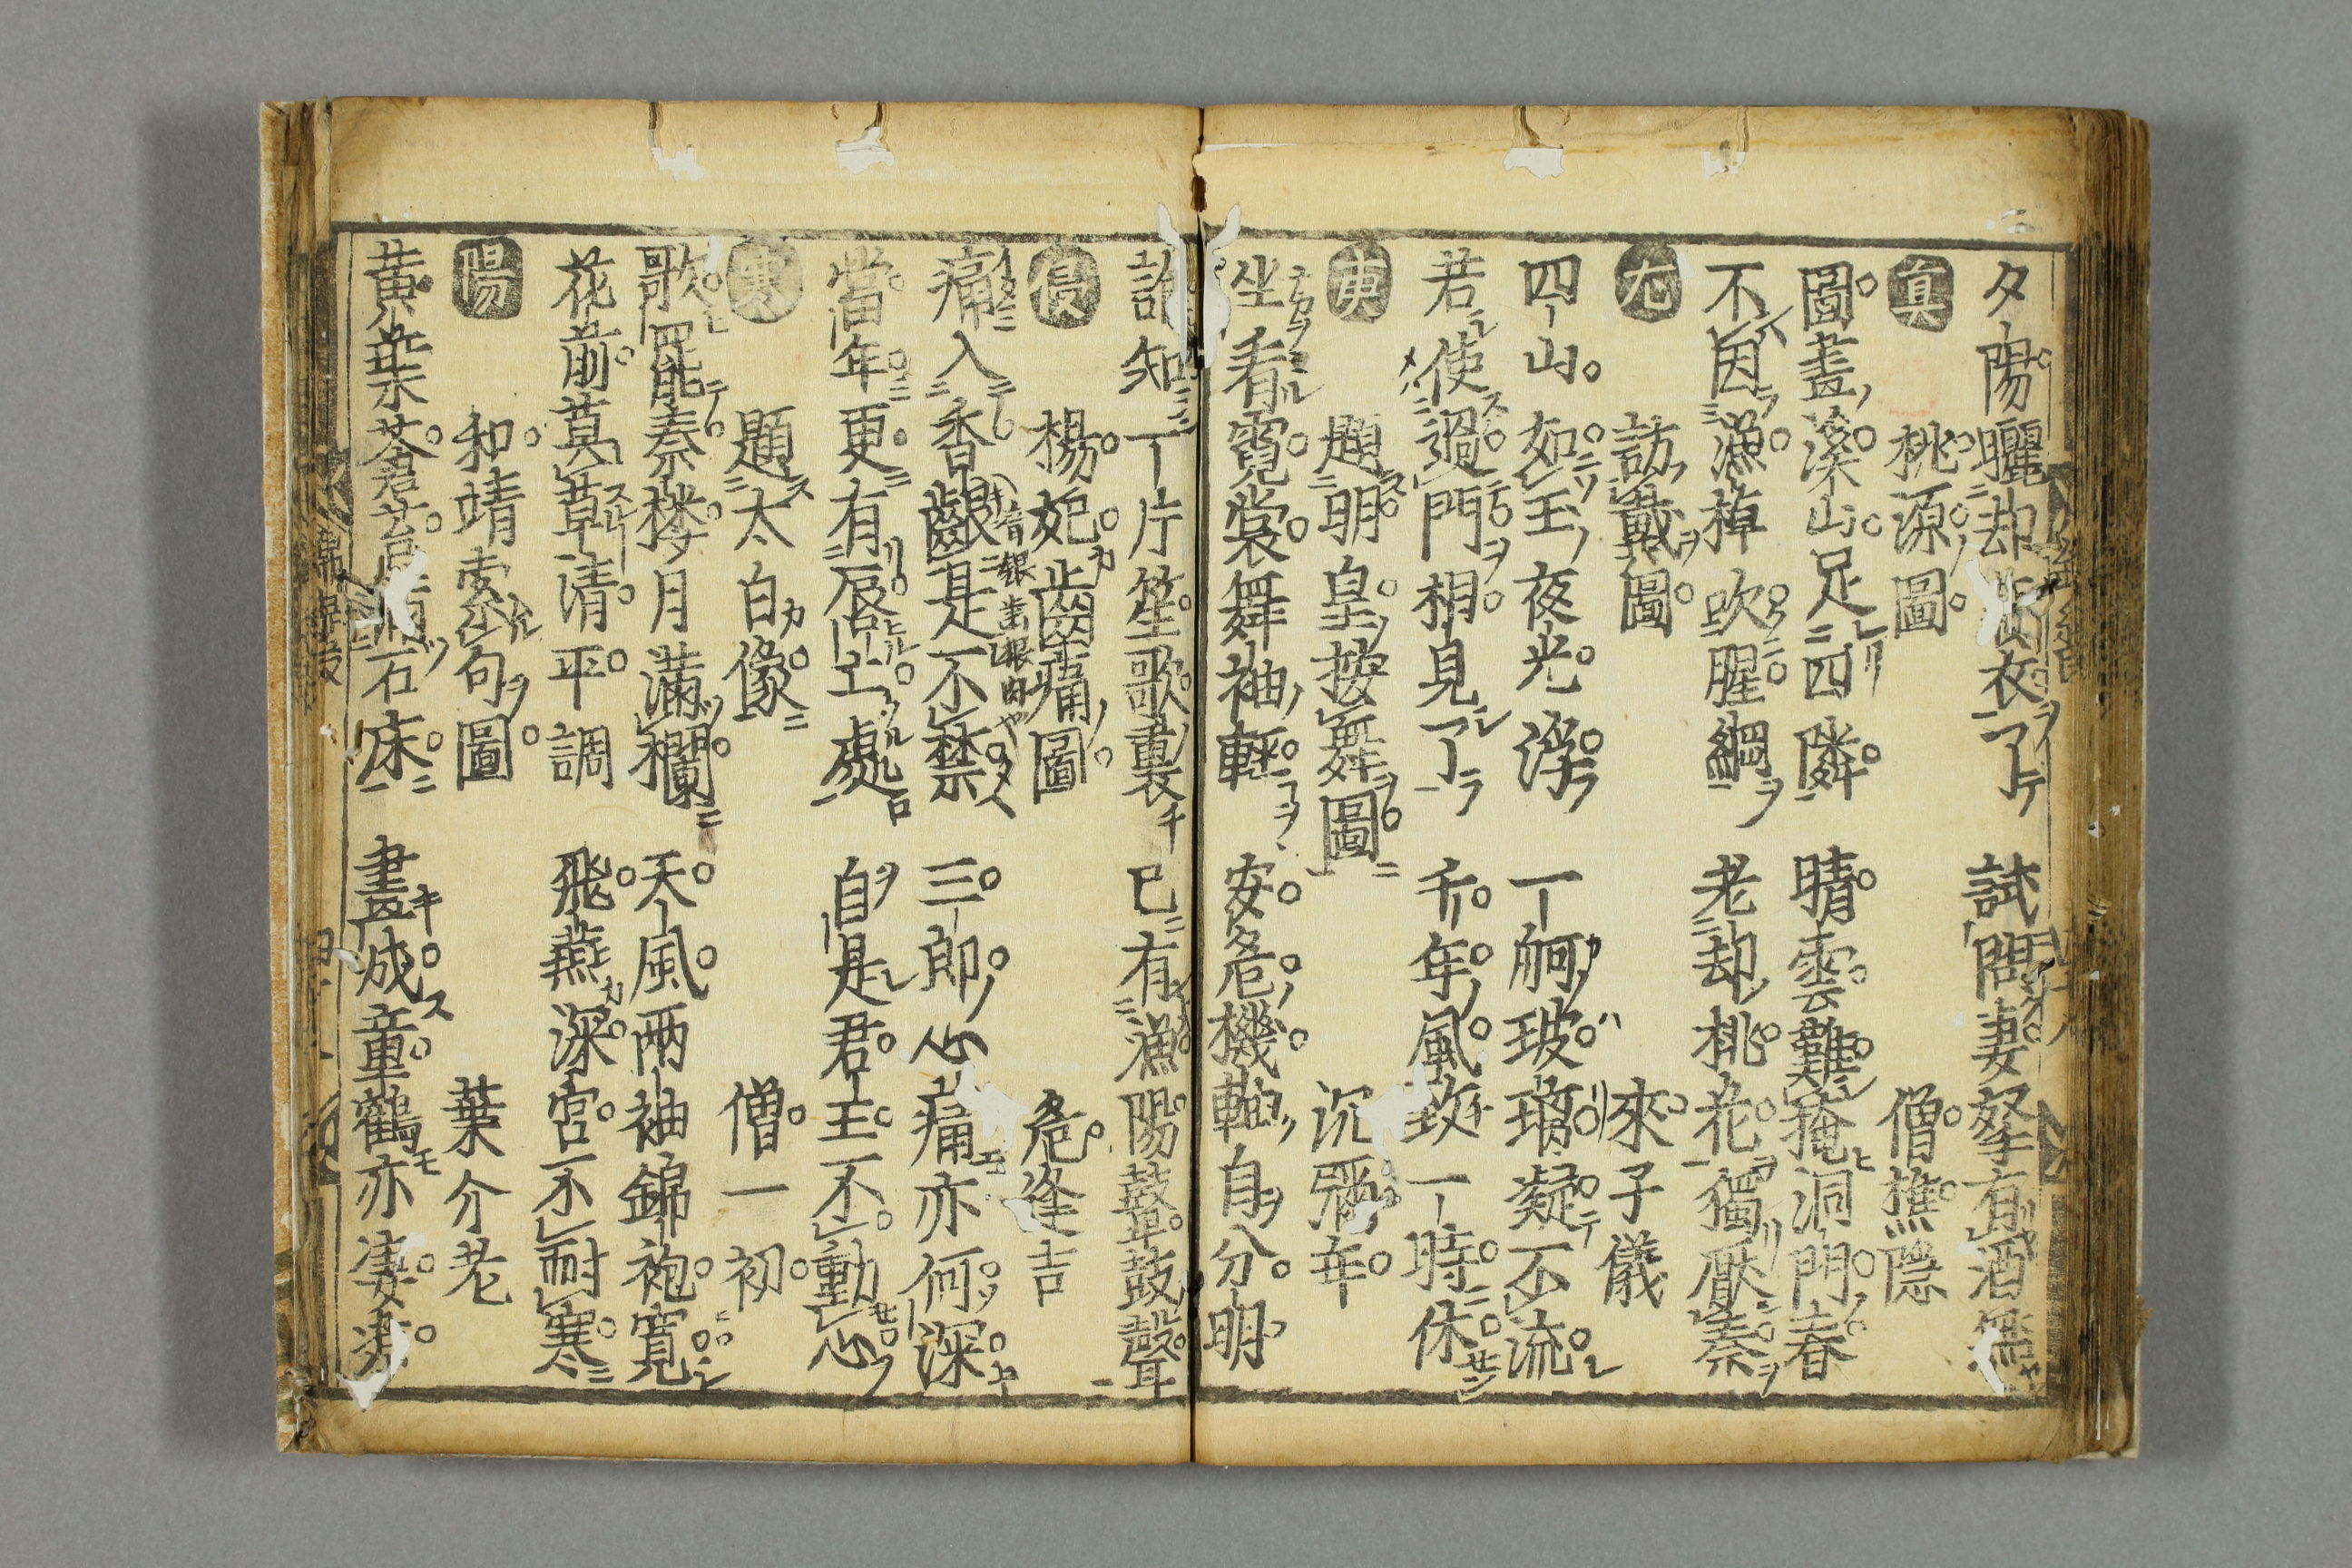 夕陽曬却衣了 試問妻孥有酒無
真 桃源圖 僧樵隱
圖畫溪山足四隣 晴雲難掩洞門春
不因漁棹吹腥網 老却桃花獨厭秦
尤 訪戴圖 來子儀
四山如玉夜光浮 一舸玻璃凝不流
若使過門相見了 千年風致一時休
庚 題明皇按舞圖 沉弼年
坐看霓裳舞袖輕 安危機軸自分明
詎知一片笙歌裏 已有漁陽鼙鼓聲
侵 楊妃齒痛圖 危逢吉
痛入香齦是不禁 三郎心痛亦何深
當年更有唇亡處 自是君王不動心
寒 題太白像 僧一初
歌罷秦楼月滿欄 天風兩袖錦袍寛
花前莫草清平調 飛燕深宮不耐寒
陽 和靖索句圖 葉介老
黄葉蒼苔滿石床 畫成童鶴亦淒